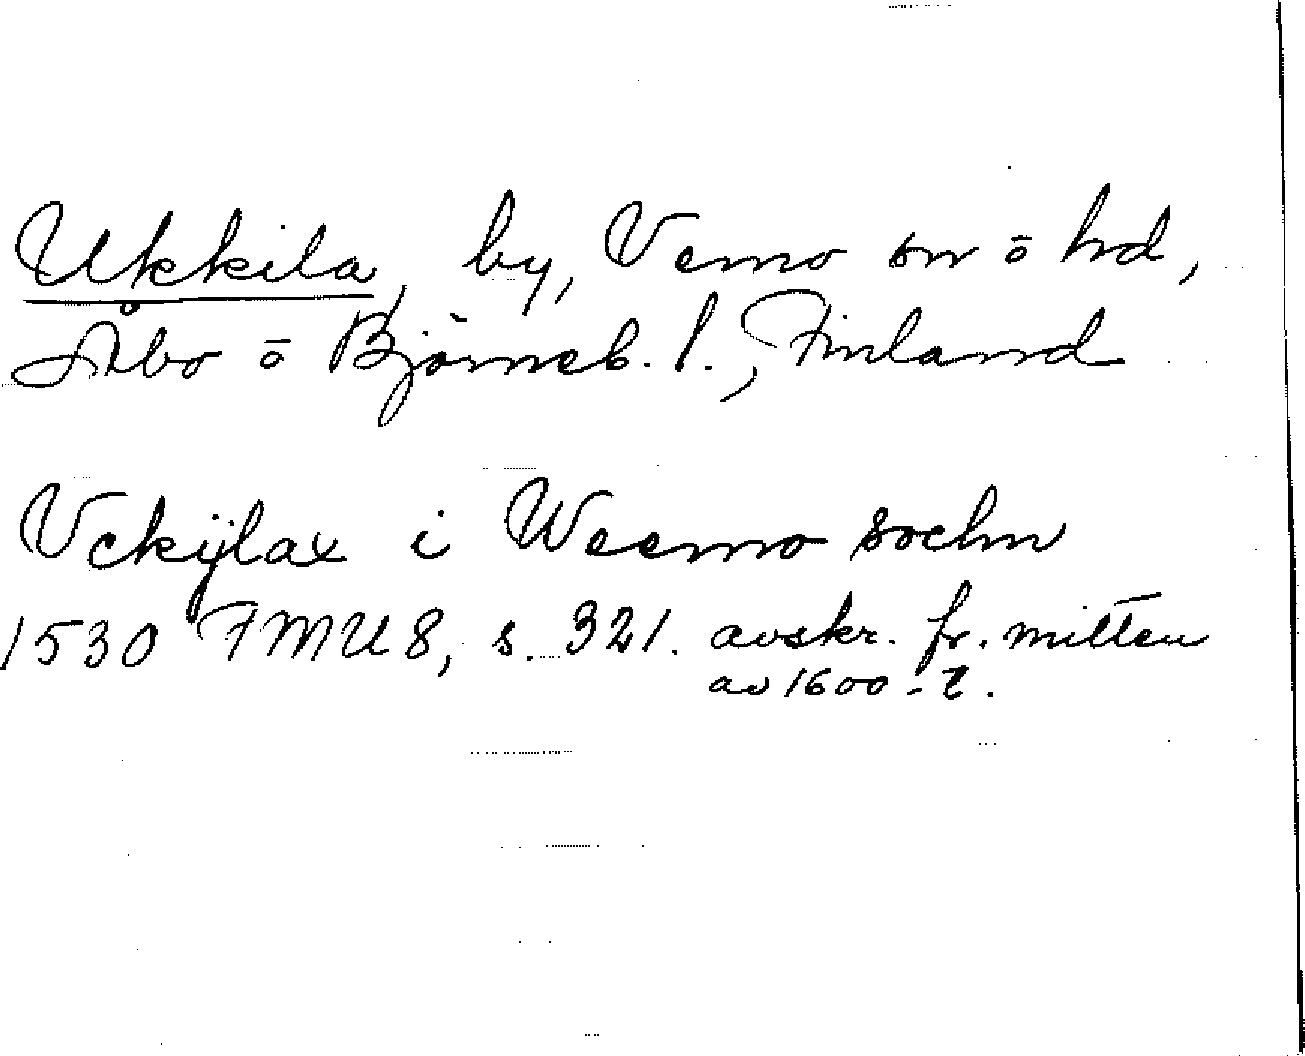 Ukkila, by, Vemo sn ō hd,
Åbo ō Björneb. l., Finland
Vckÿlax i Weemo sochn
1530 FMU 8, s. 321. avskr. fr. mitten
av 1600-t.